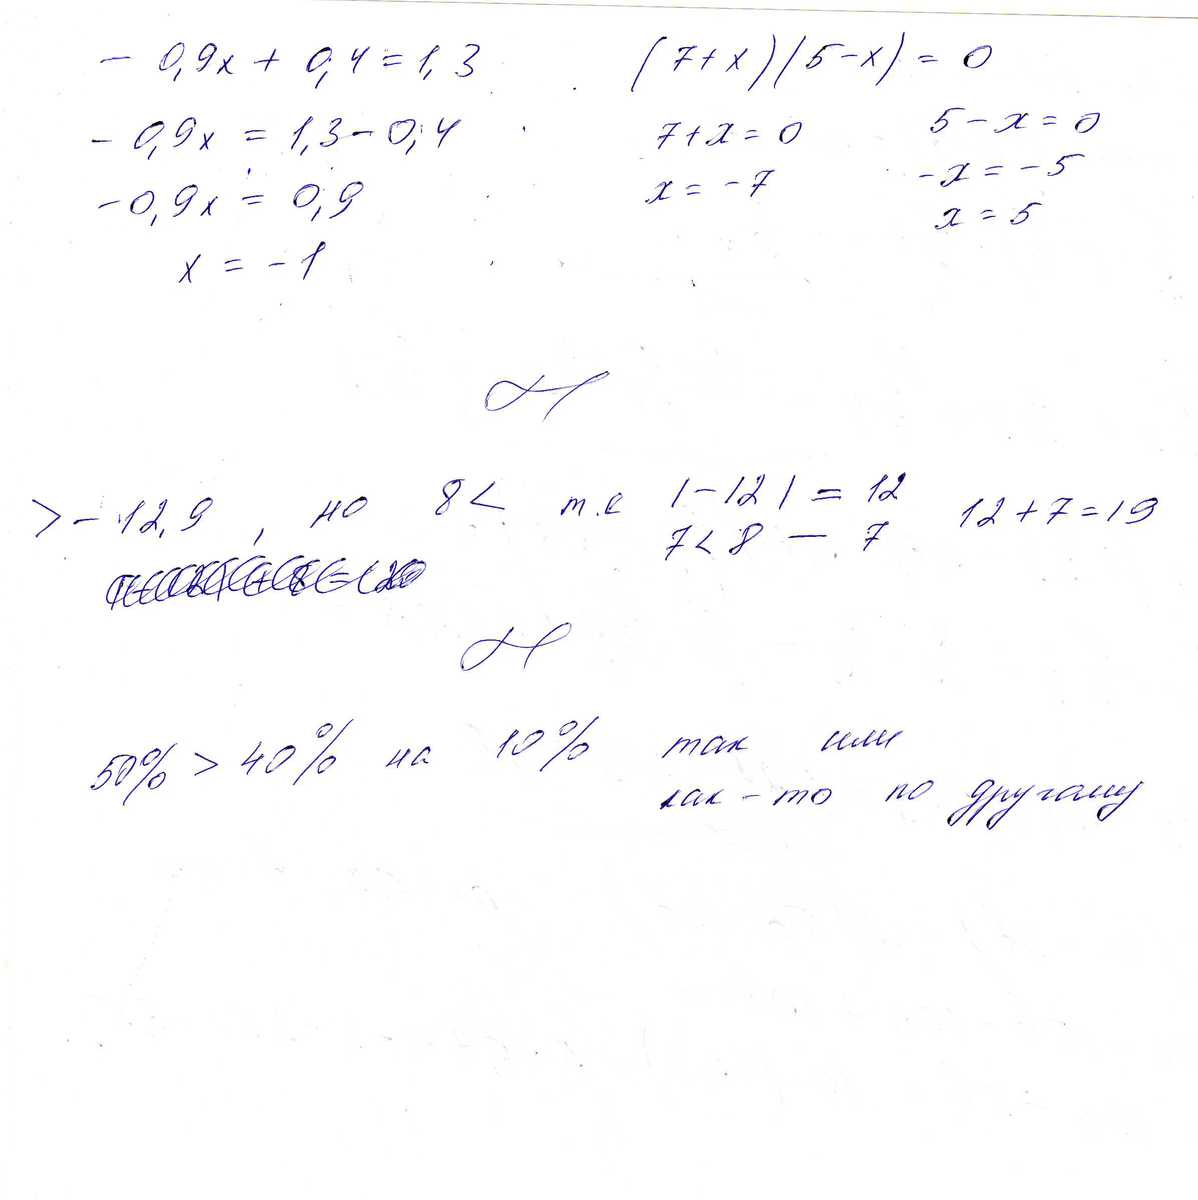 - 0,9x + 0,4 = 1,3
- 0,9x = 1,3 - 0,4
-0,9x = 0,9
x = -1
(7+x)(5-x) = 0
7+x=0
x = -7
5-x=0
-x = -5
x = 5
> -12,9 , но 8< т.е |-12| = 12 12+7=19
7<8 — 7
50% > 40% на 10% так или
как-то по другому